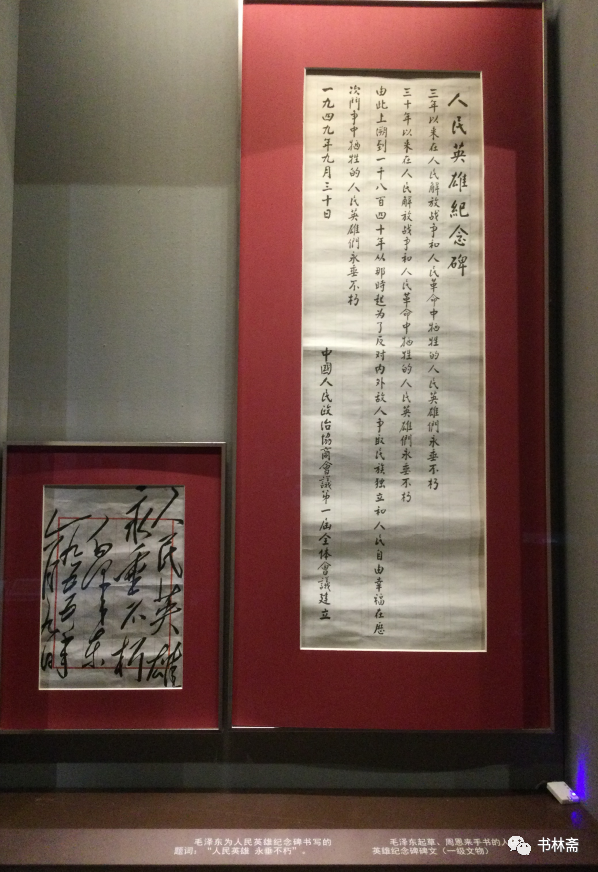 人民英雄紀念碑
三年以来在人民解放战争和人民革命中牺牲的人民英雄們永垂不朽
三十年以来在人民解放战争和人民革命中牺牲的人民英雄們永垂不朽
由此上溯到一千八百四十年从那時起为了反对内外敌人争取民族独立和人民自由幸福在历
次鬥争中牺牲的人民英雄們永垂不朽
一九四九年九月三十日
中國人民政治協商會議第一屆全体會議建立
人民英雄
永垂不朽
毛泽东
一九五五年
六月九日
毛泽东为人民英雄纪念碑书写的
题词：“人民英雄 永垂不朽”。
毛泽东起草、周恩来手书的人
英雄纪念碑碑文（一级文物）
书林斋